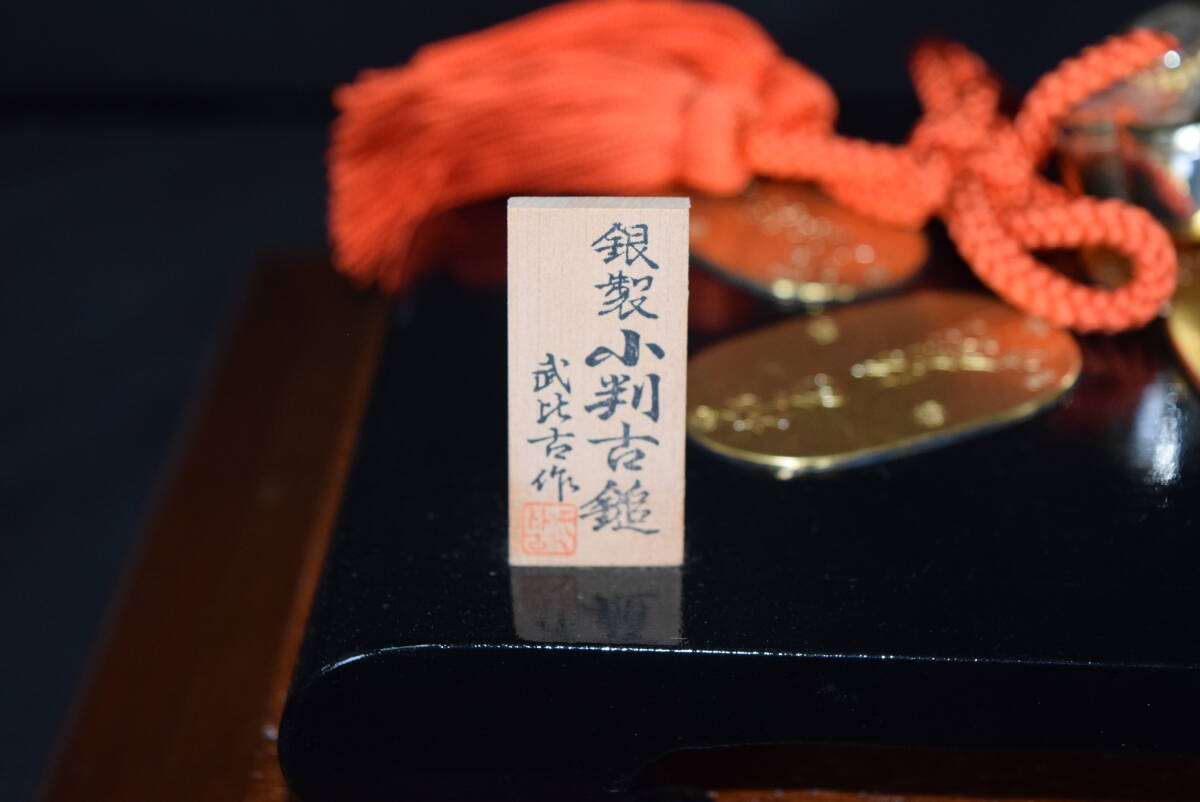 銀製小判古鎚
武比古作